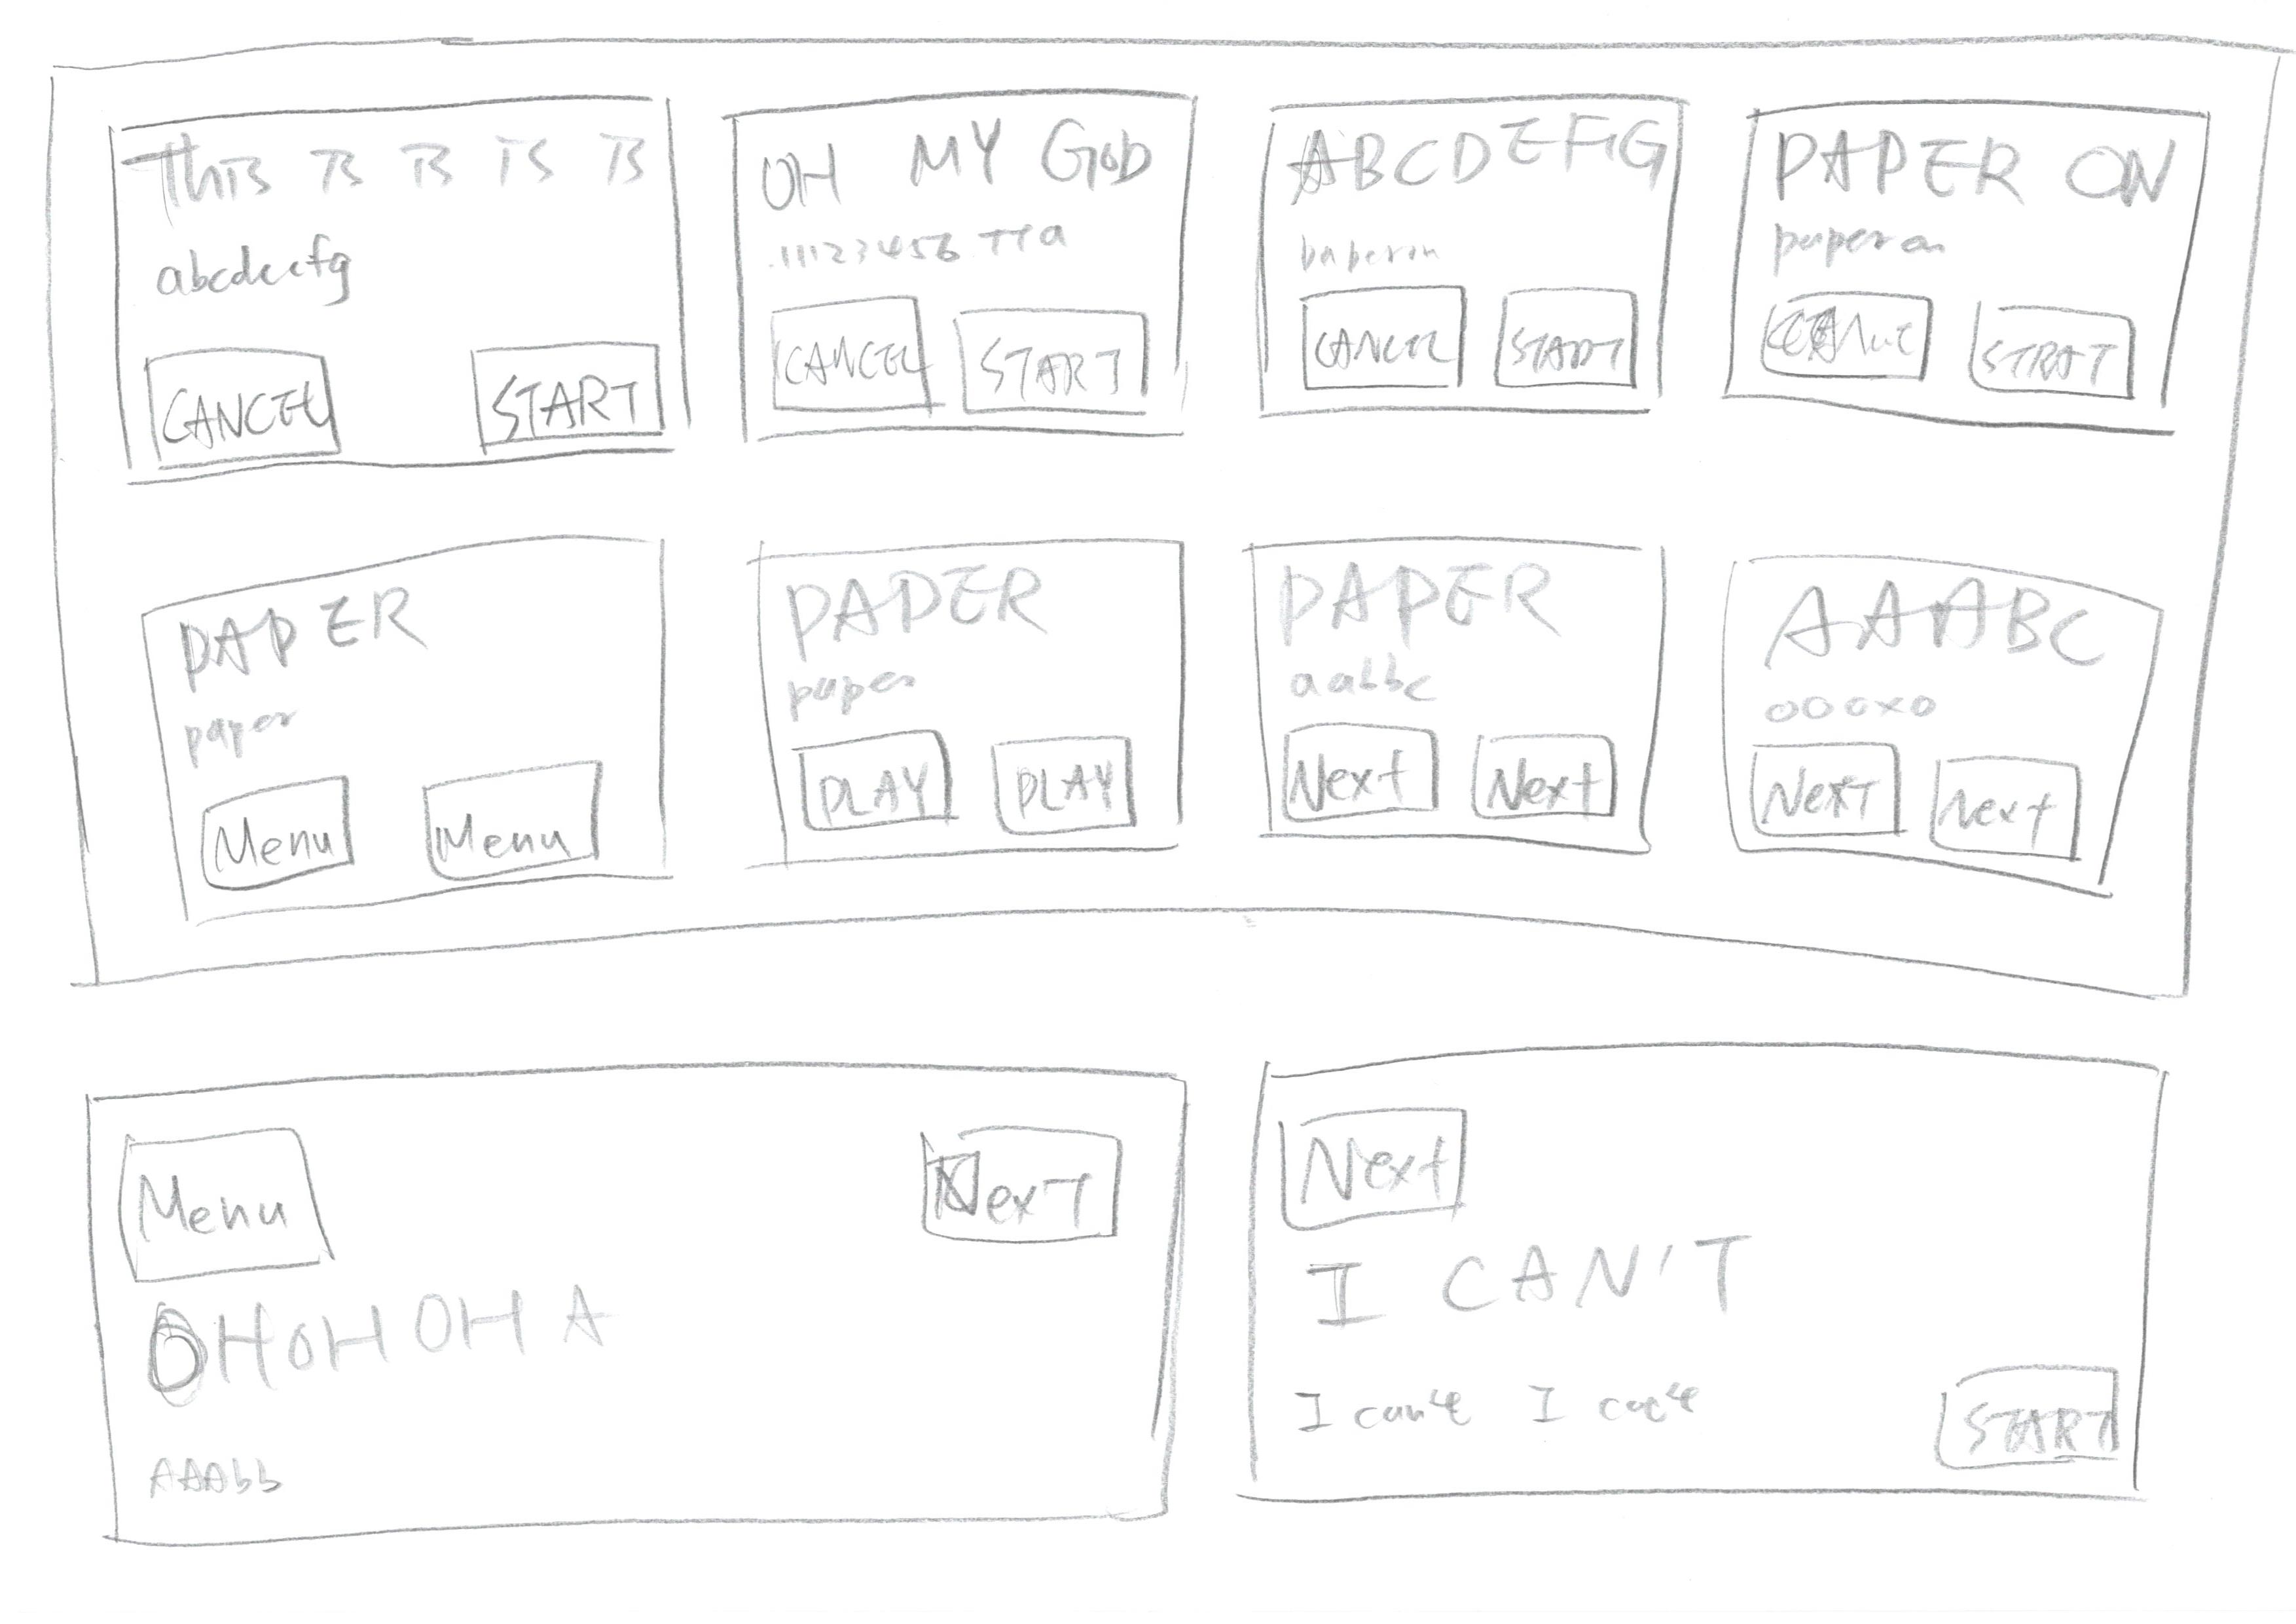 THIS IS IS IS IS
abcdeefg
CANCEL START
OH MY GOD
.11123456.TTa
CANCEL START
ABCDEFG
paperon
CANCEL START
PAPER ON
paper on
STRAT
PAPER
paper
Menu Menu
PAPER
paper
PLAY PLAY
PAPER
aabbc
Next Next
AAABC
OOOXO
NeXT Next
Menu NexT
OHOHOHA
AAAbb
Next
I CAN'T
I can't I
START